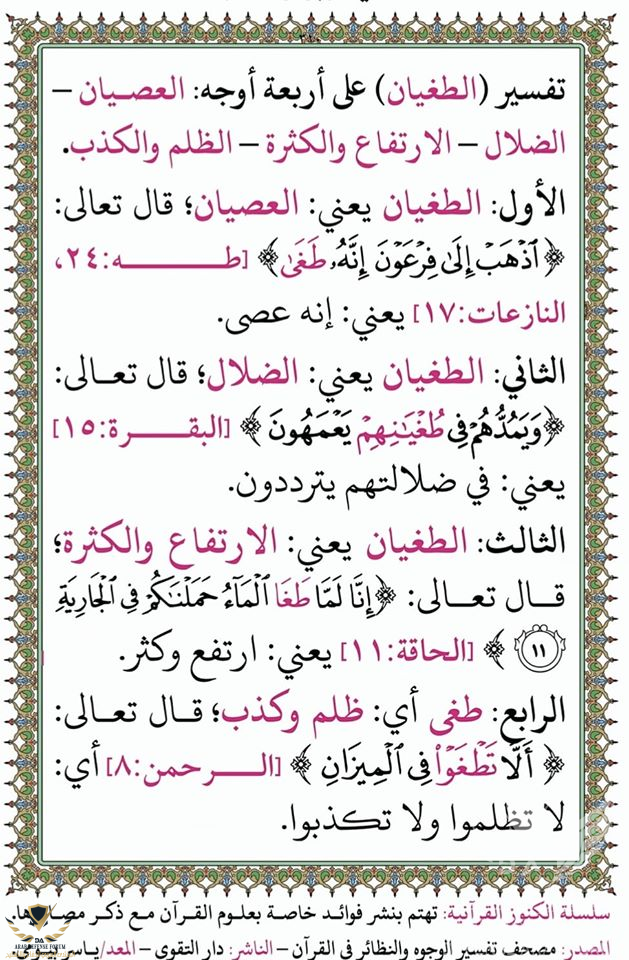 تفسير (الطغيان) على أربعة أوجه: العصيان –
الضلال – الارتفاع والكثرة – الظلم والكذب.
الأول: الطغيان يعني: العصيان؛ قال تعالى:
﴿ٱذۡهَبۡ إِلَىٰ فِرۡعَوۡنَ إِنَّهُۥ طَغَىٰ﴾ [طه:٢٤،
النازعات:١٧] يعني: إنه عصى.
الثاني: الطغيان يعني: الضلال؛ قال تعالى:
﴿وَيَمُدُّهُمۡ فِي طُغۡيَٰنِهِمۡ يَعۡمَهُونَ﴾ [البقرة:١٥]
يعني: في ضلالتهم يترددون.
الثالث: الطغيان يعني: الارتفاع والكثرة؛
قال تعالى: ﴿إِنَّا لَمَّا طَغَا ٱلۡمَآءُ حَمَلۡنَٰكُمۡ فِي ٱلۡجَارِيَةِ
١١﴾ [الحاقة:١١] يعني: ارتفع وكثر.
الرابع: طغى أي: ظلم وكذب؛ قال تعالى:
﴿أَلَّا تَطۡغَوۡاْ فِي ٱلۡمِيزَانِ﴾ [الرحمن:٨] أي:
لا تظلموا ولا تكذبوا.
سلسلة الكنوز القرآنية: تهتم بنشر فوائد خاصة بعلوم القرآن مع ذكر
المصدر: مصحف تفسير الوجوه والنظائر في القرآن – الناشر: دار التقوى – المعد/ياسر
DA
ARAB DEFENSE FORUM